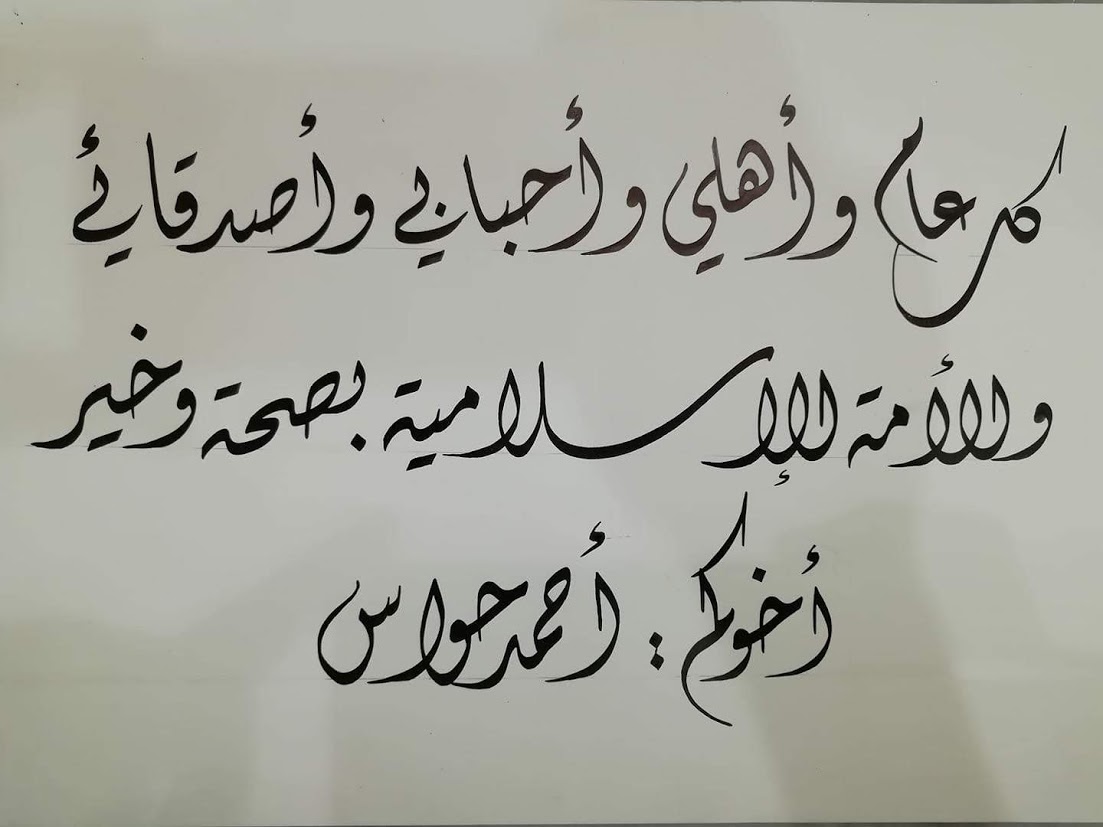 كل عام وأهلي وأحبابي وأصدقائي
والأمة الإسلامية بصحة وخير
أخوكم : أحمد حواس